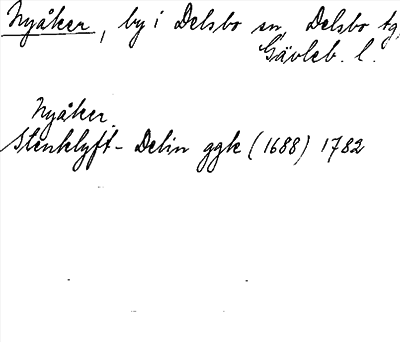 Nyåker, by i Delsbo sn, Delsbo tg,
Gävleb. l.
Nyåker.
Stenklyft - Delin ggk (1688) 1782